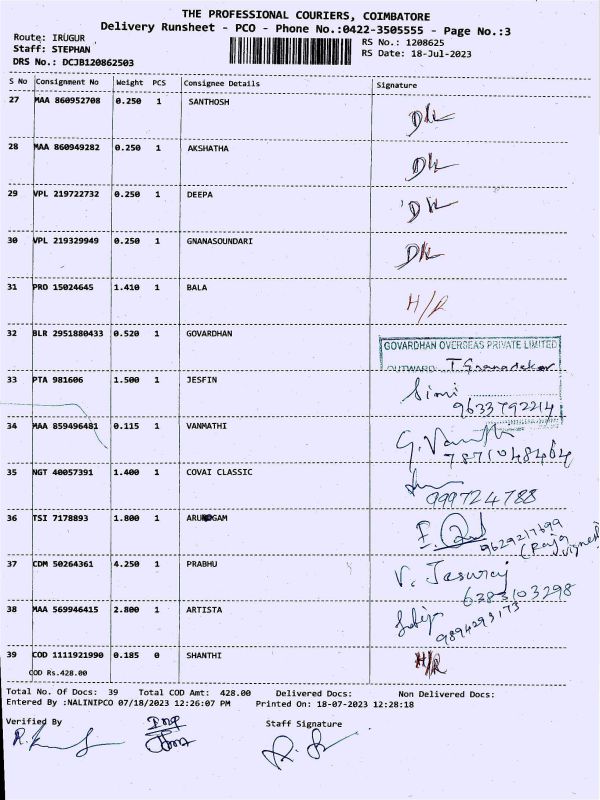 THE PROFESSIONAL COURIERS, COIMBATORE
Delivery Runsheet - PCO - Phone No.:0422-3505555 - Page No.:3
Route: IRUGUR
RS No.: 1208625
Staff: STEPHAN
RS Date: 18-Jul-2023
DRS No.: DCJB120862503
S No Consignment No Weight PCS Consignee Details Signature
27 MAA 860952708 0.250 1 SANTHOSH
28 MAA 860949282 0.250 1 AKSHATHA
29 VPL 219722732 0.250 1 DEEPA
30 VPL 219329949 0.250 1 GNANASOUNDARI
31 PRO 15024645 1.410 1 BALA H/R
32 BLR 2951880433 0.520 1 GOVARDHAN
GOVARDHAN OVERSEAS PRIVATE LIMITED
OUTWARD
33 PTA 981606 1.500 1 JESFIN Simi
9633792214
34 MAA 859496481 0.115 1 VANMATHI
7871048464
35 NGT 40057391 1.400 1 COVAI CLASSIC
999724788
36 TSI 7178893 1.800 1
9629217699
37 CDM 50264361 4.250 1 PRABHU V. Jeswraj
6383103298
38 MAA 569946415 2.800 1 ARTISTA
9894293173
39 COD 1111921990 0.185 0 SHANTHI H/R
COD Rs.428.00
Total No. Of Docs: 39 Total COD Amt: 428.00 Delivered Docs: Non Delivered Docs:
Entered By :NALINIPCO 07/18/2023 12:26:07 PM Printed On: 18-07-2023 12:28:18
Verified By Staff Signature